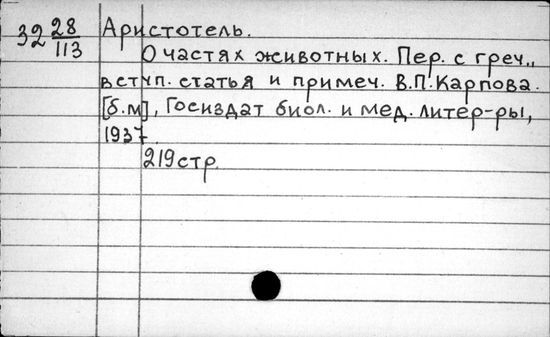 32 28/113 Аристотель.
О частях животных. Пер. с греч.,
вступ. статья и примеч. В.П.Карпова.
[б.м], Госиздат биол. и мед. литер-ры,
1937.
219 стр.